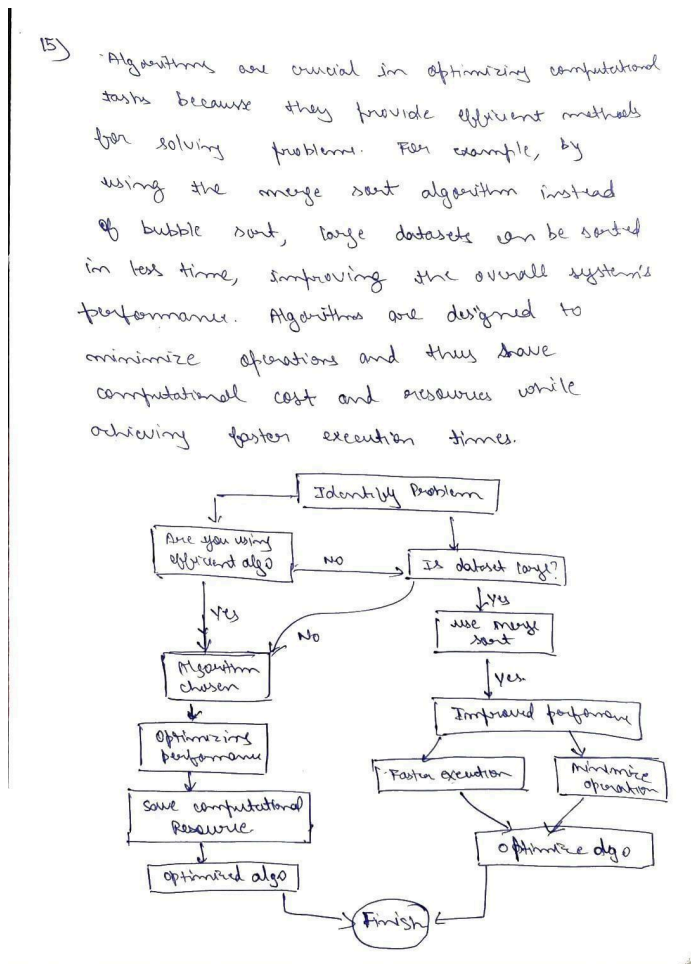 15)
Algorithms are crucial in optimizing computational
tasks because they provide efficient methods
for solving problems. For example, by
using the merge sort algorithm instead
of bubble sort, large datasets can be sorted
in less time, improving the overall system's
performance. Algorithms are designed to
minimize operations and thus save
computational cost and resources while
achieving faster execution times.
Identify Problem
Are you using
efficient algo
NO
Is dataset large?
Yes
NO
Yes
use merge
sort
Algorithm
chosen
Yes.
Improved performance
Optimizing
performance
Faster execution
minimize
operation
Save computational
Resource
Optimize algo
Optimized algo
Finish